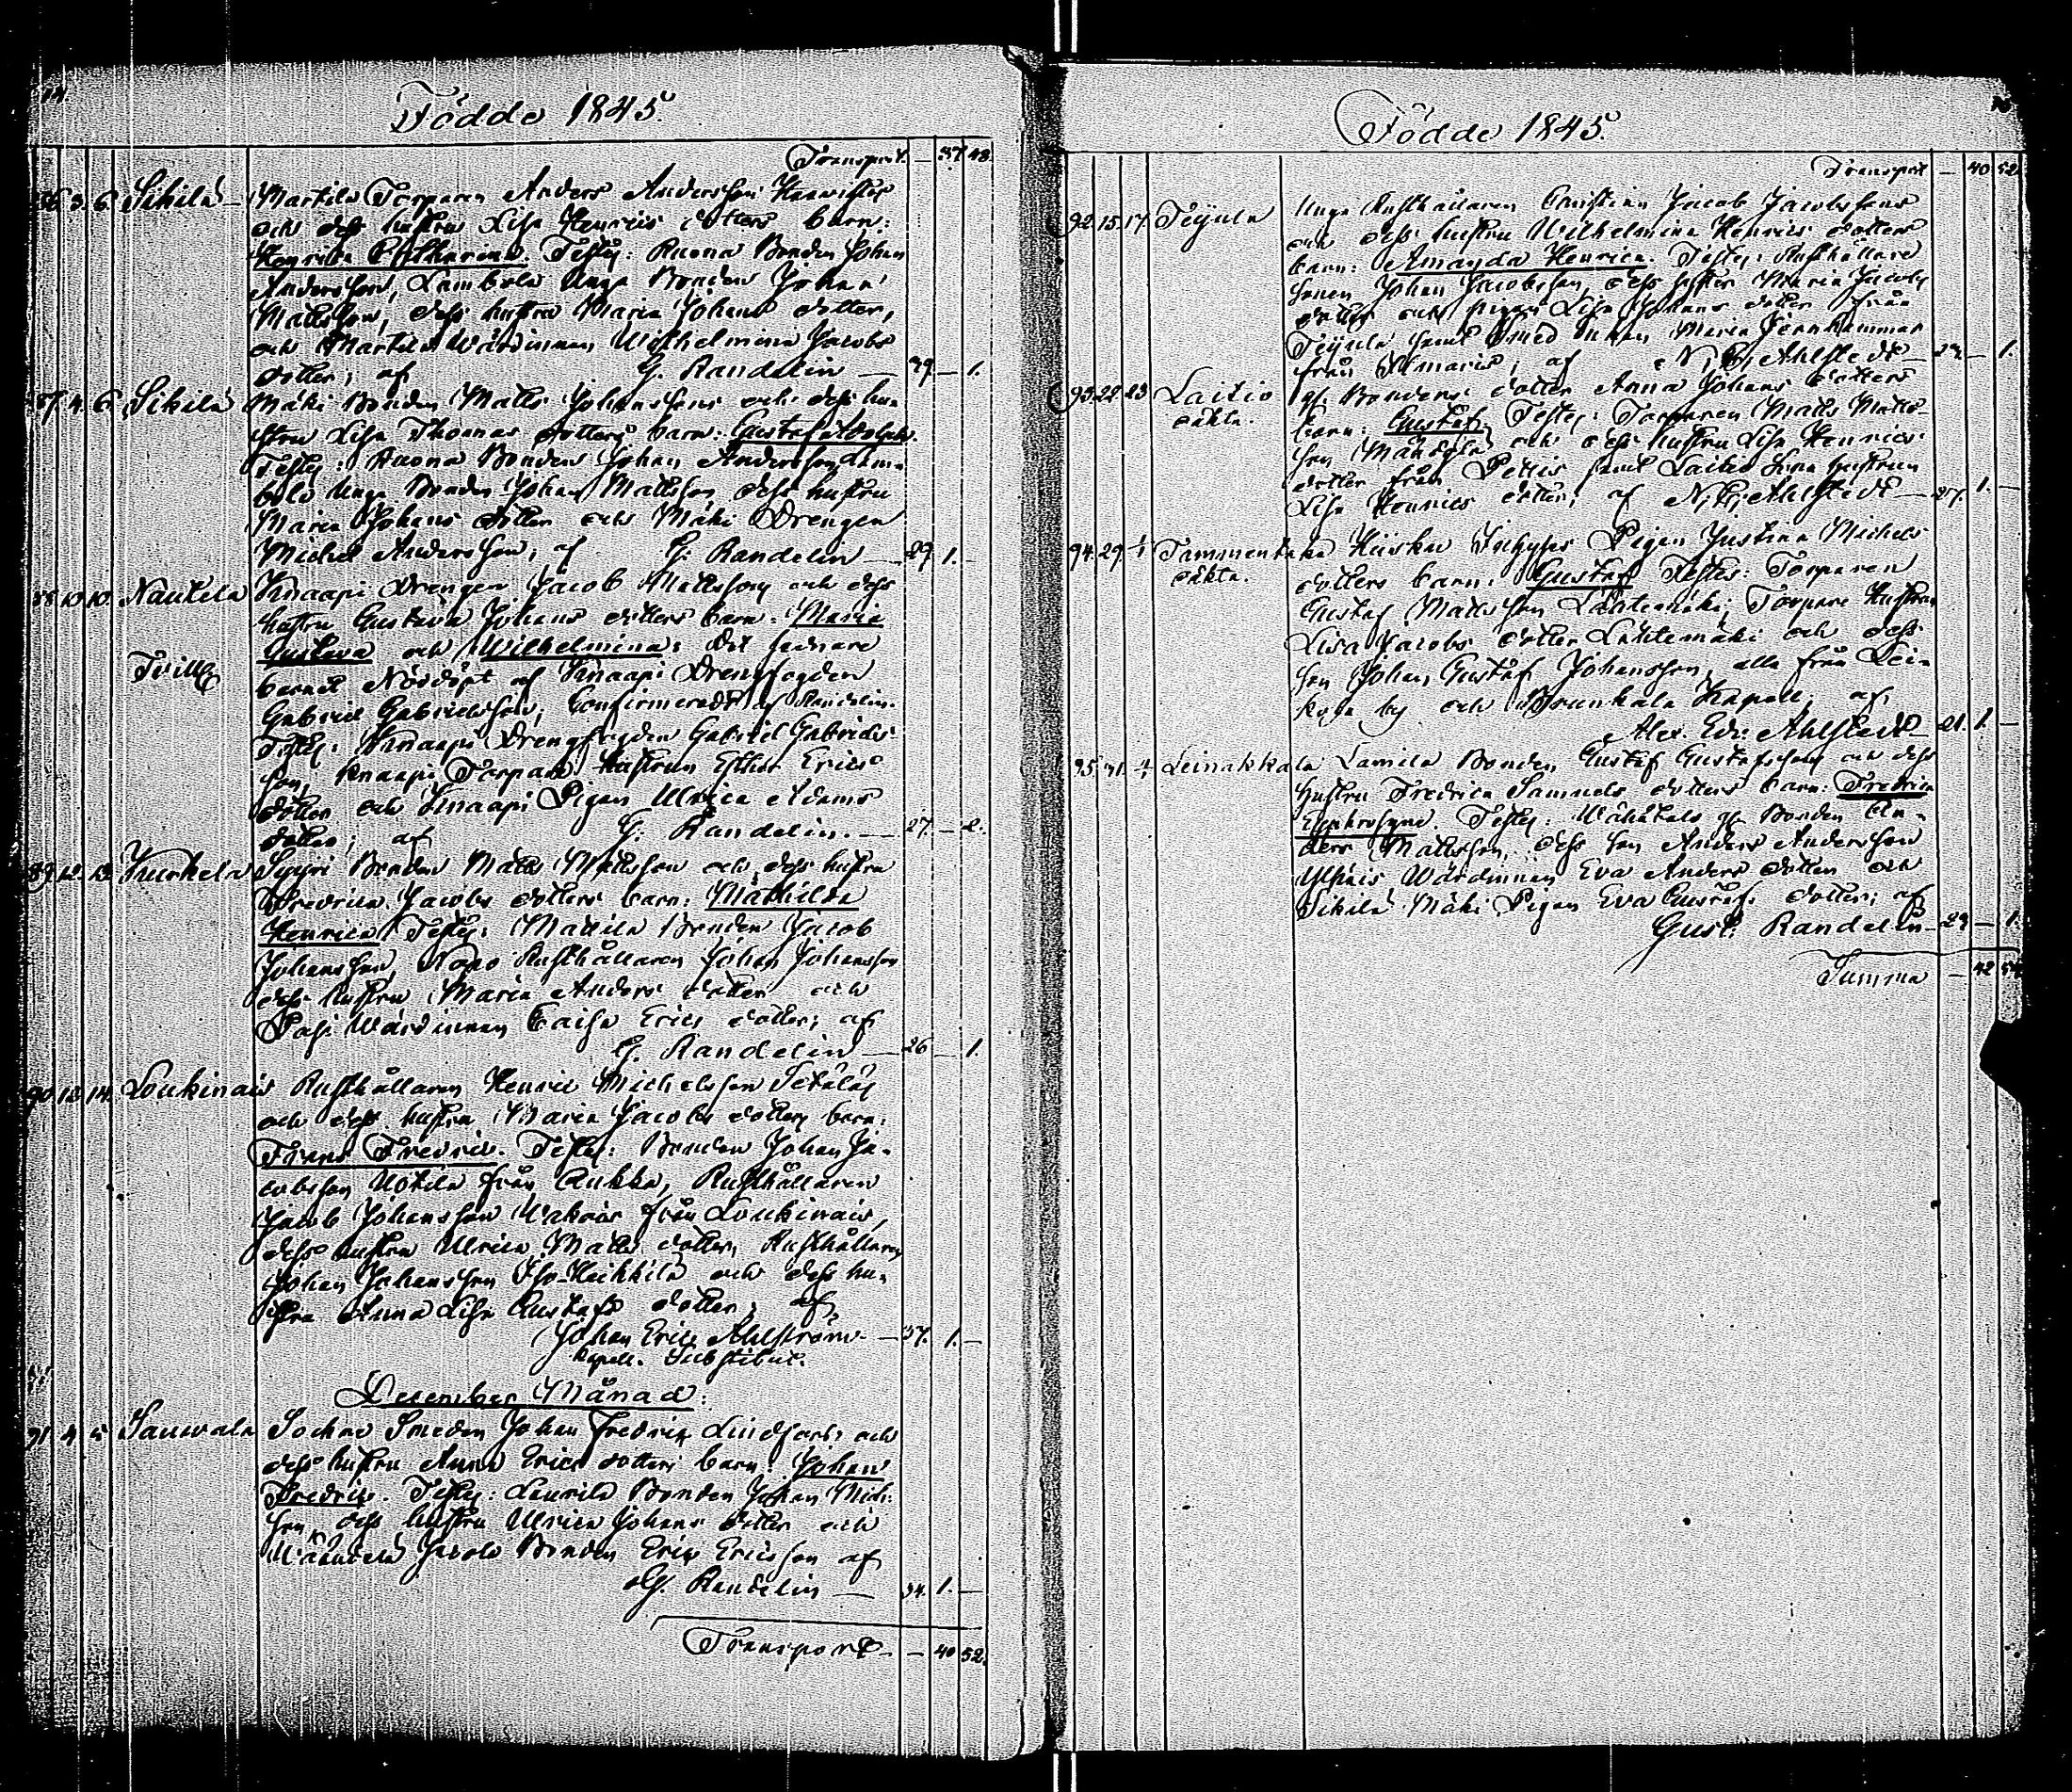 Födde 1845.
Transport. — 37 48.
86. 3. 6. Sikilä — Martila Torparen Anders Andersson
och dess hustru Lisa Henrics dotters barn:
Henrica Catharina. Testes: Ruona Bonden Johan
Andersson, Lambola Unga Bonden Johan
Mattsson, dess hustru Maria Johans dotter,
och Martila Wärdinnan Wilhelmina Jacobs
dotter; af G. Randelin — 29. — 1.
87. 4. 6. Sikilä Mäki Bonden Matts Johanssons och dess hu-
stru Lisa Thomas dotters barn: Gustaf Adolph.
Testes: Ruona Bonden Johan Andersson, Lam-
bola Unga Bonden Johan Mattsson dess hustru
Maria Johans dotter och Mäki Drengen
Michel Andersson; af G. Randelin — 29. 1. —
88. 10. 10. Nautela Knaapi Drengen Jacob Mattsson och dess
hustru Gustava Johans dotters barn: Maria
Gustava och Wilhelmina: Det senare
Tvill.
barnet Nöddöpt af Knaapi Drengfogden
Gabriel Gabrielsson; Confirmeradt af Randelin.
Testes: Knaapi Drengfogden Gabriel Gabriels-
son, Knaapi Torpare Hustrun Esther Erics
dotter och Knaapi Pigan Ulrica Adams
dotter; af G. Randelin. — 27. — 2.
89. 12. 13. Kurkela Syyri Bonden Matts Mattsson och dess hustru
Fredrica Jacobs dotters barn: Mathilda
Henrica. Testes: Mattila Bonden Jacob
Johansson, Rusthållaren Johan Johansson
dess hustru Maria Anders dotter och
Pasi Wärdinnan Caisa Erics dotter; af
G. Randelin — 26 — 1.
90. 12. 14. Loukinais Rusthållaren Henric Michelsson Setälä
och dess hustru Maria Jacobs dotters barn:
Frans Fredric. Testes: Bonden Johan Ja-
cobsson Uotila från Kukka, Rusthållaren
Jacob Johansson från Loukinais,
dess hustru Ulrica Matts dotter, Rusthållaren
Johan Johansson Iso-Heikkilä och dess hu-
stru Anna Lisa Gustafs dotter; af
Johan Eric Ahlström — 37. 1. —
Kapell. Substitut.
December Månad.
91. 4. 5. Sauvala Sockne Smeden Johan Fredrik Lindfors och
dess hustru Anna Erics dotters barn: Johan
Fredric. Testes: Laurila Bonden Johan Mich.
son dess hustru Ulrica Johans dotter och
Jacola Bonden Eric Ericsson af
G. Randelin — 34. 1. —
Transport — — 40 52.
Födde 1845.
Transport — 40 52.
92. 15. 17. Teynla Unga Rusthållaren Christian Jacob Jacobssons
och dess hustru Wilhelmina Henrics dotters
barn: Amanda Henrica. Testes: Rusthållare
sonen Johan Jacobsson, dess syster Maria Jacobs
dotter och pigan Lisa Johans dotter från
Teynla samt Maria Jernhammar
från Almaris; af N. G. Ahlstedt — — 1.
93. 22. 23. Laitio gf. Bondens dotter Anna Johans dotters
oäkta. barn: Gustaf. Testes: Torparen Matts Matts-
son och dess hustru Lisa Henrics
dotter från Pettis samt Laitio hustrun
Lisa Henrics dotter; af N. G. Ahlstedt — 27. 1. —
94. 29. 1/1 Tammentaka Hiisku Inhyses Pigan Justina Michels
oäkta. dotters barn: Gustaf Testes: Torparen
Gustaf Mattsson Lähtemäki, Torpare Hustrun
Lisa Jacobs dotter Lähtemäki och dess
son Johan Gustaf Johansson, alla från Lei-
by och Brunkala Kapell; af
Alex. Edv. Ahlstedt — 21. 1. —
95. 31. 4/1 Leinakkala Lamila Bonden Gustaf Gustafsson och dess
hustru Fredrica Samuels dotters barn: Fredrica
Euphrosyne. Testes: Wähätalo gf. Bonden An-
ders Mattsson, dess son Anders Andersson
Yllpäis Wärdinnan Eva Anders dotter och
Sikilä Mäki Pigan Eva Gustafs dotter; af
Gust. Randelin — 29 — 1.
Summa — 42 54.